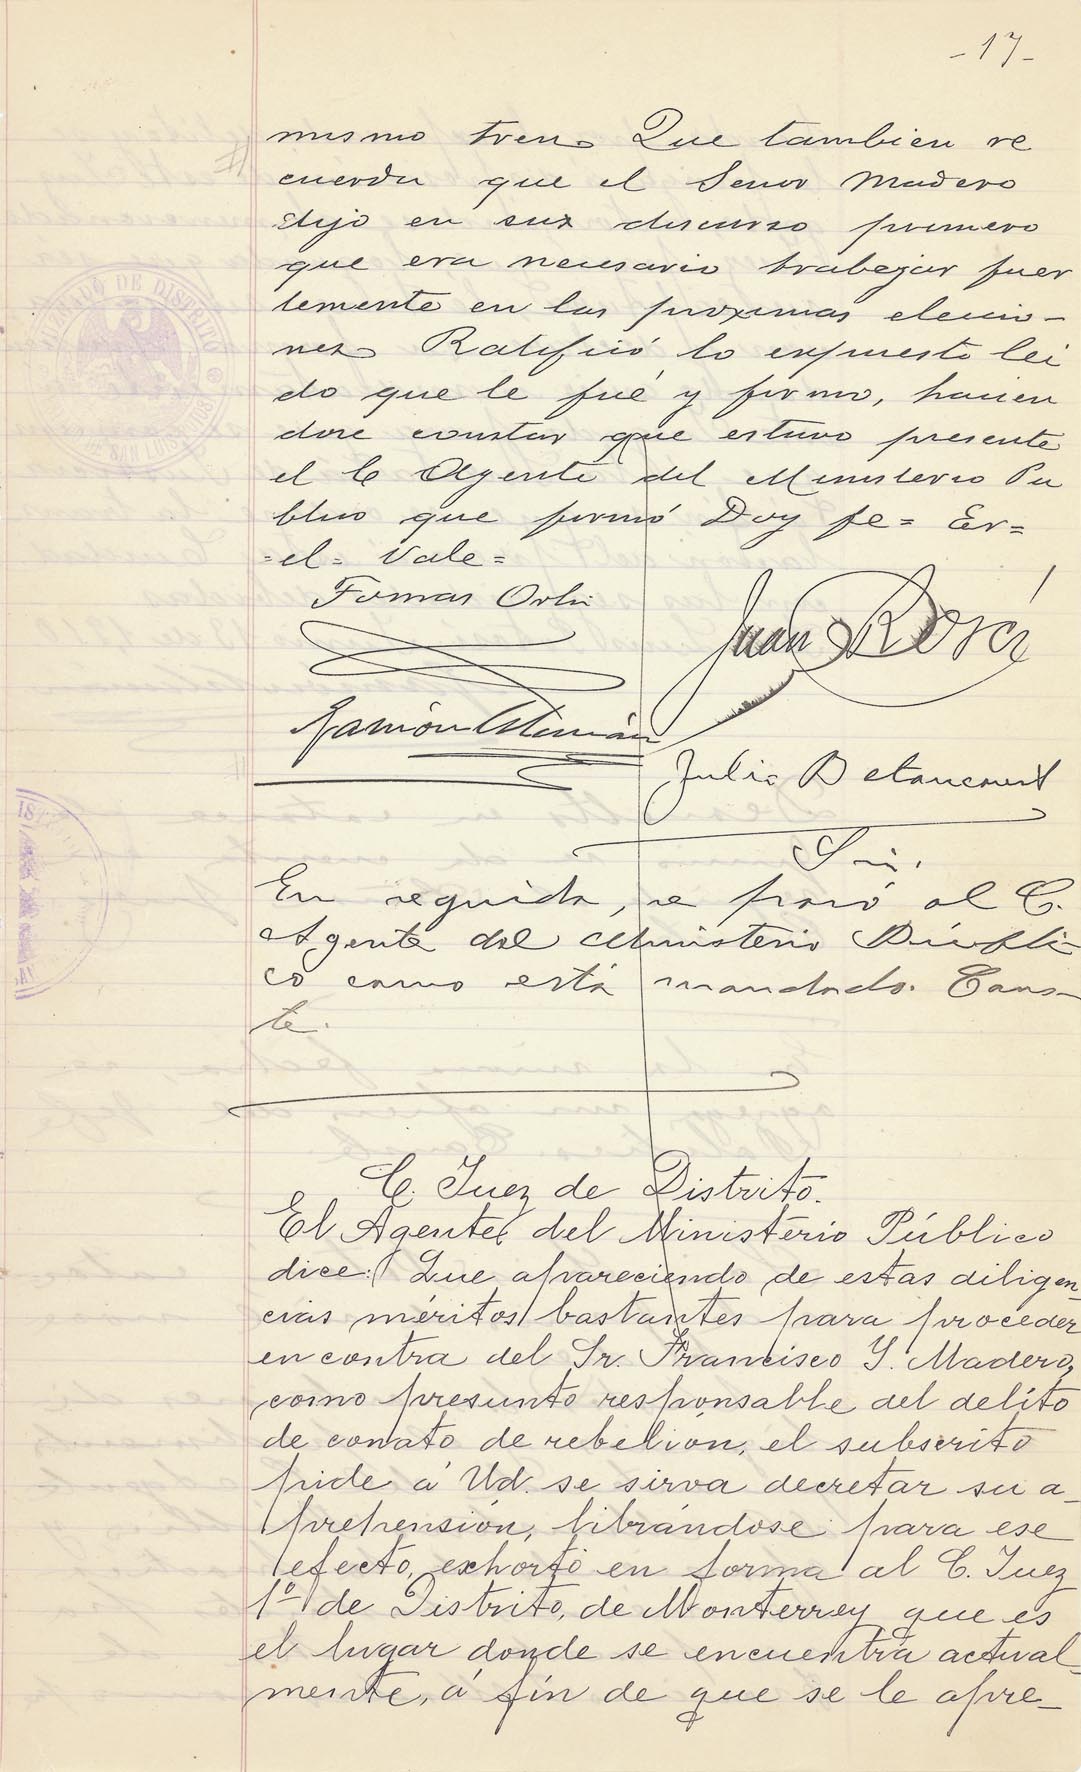 - 17 -
mismo tren. Que tambien re
cuerda que el Senor Madero
dijo en sus discurso primero
que era necesario trabajar fuer
temente en las proximas eleccio-
nes. Ratificó lo expuesto lei
do que le fué y firmo, hacien
dose constar que estuvo presente
el C Agente del Ministerio Pu
blico que firmó Doy fe = Er=
=el= Vale=
Tomas Orti
Juan
Ramón Alemán
Julio Betancourt
Sri.
En seguida, se pasó al C.
Agente del Ministerio Públi-
co como está mandado. Cons-
te.
C. Juez de Distrito.
El Agente del Ministerio Público
dice: Que apareciendo de estas diligen-
cias méritos bastantes para proceder
en contra del Sr. Francisco Y. Madero,
como presunto responsable del delito
de conato de rebelión, el subscrito
pide á Ud. se sirva decretar su a-
prehensión, librándose para ese
efecto, exhorto en forma al C. Juez
1º de Distrito, de Monterrey que es
el lugar donde se encuentra actual-
mente, á fin de que se le apre-